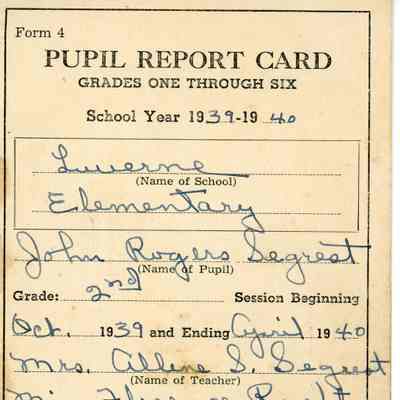 Form 4
PUPIL REPORT CARD
GRADES ONE THROUGH SIX
School Year 1939-1940
Luverne
(Name of School)
Elementary
John Rogers Segrest
(Name of Pupil)
Grade: 2nd Session Beginning
Oct. 1939 and Ending April 1940
Mrs. Allene S. Segrest
(Name of Teacher)